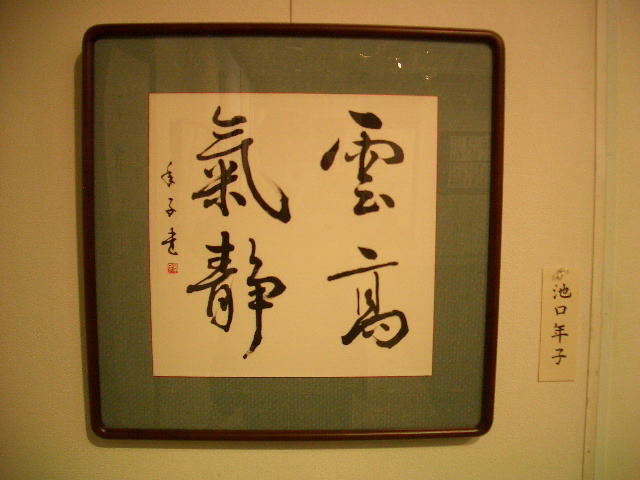 雲高
氣静
年子書
池口年子